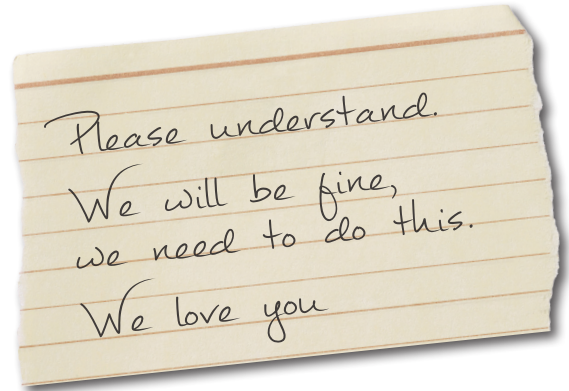 Please understand.
We will be fine,
we need to do this.
We love you